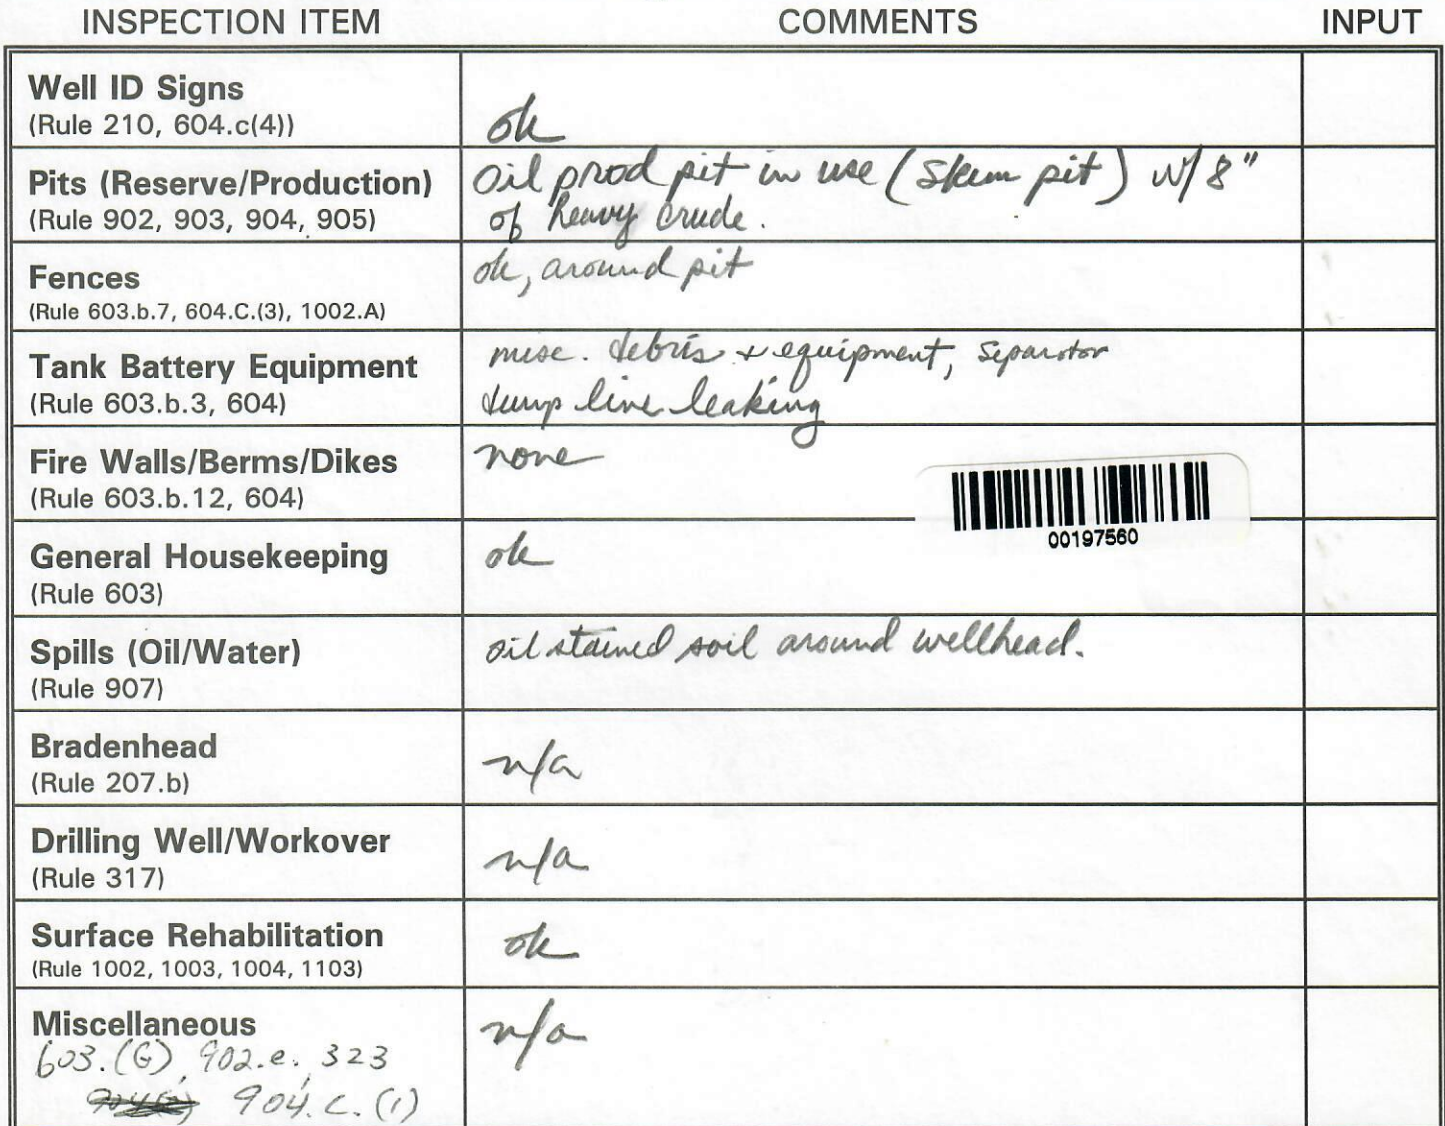 INSPECTION ITEM COMMENTS INPUT
Well ID Signs
(Rule 210, 604.c(4))
ok
Pits (Reserve/Production)
(Rule 902, 903, 904, 905)
oil prod pit in use (Skim pit) w/ 8"
of heavy crude.
Fences
(Rule 603.b.7, 604.C.(3), 1002.A)
ok, around pit
Tank Battery Equipment
(Rule 603.b.3, 604)
misc. debris + equipment, Separator
dump line leaking
Fire Walls/Berms/Dikes
(Rule 603.b.12, 604)
none
00197560
General Housekeeping
(Rule 603)
ok
Spills (Oil/Water)
(Rule 907)
oil stained soil around wellhead.
Bradenhead
(Rule 207.b)
n/a
Drilling Well/Workover
(Rule 317)
n/a
Surface Rehabilitation
(Rule 1002, 1003, 1004, 1103)
ok
Miscellaneous
603.(G), 902.e., 323
904.c.(1)
n/a